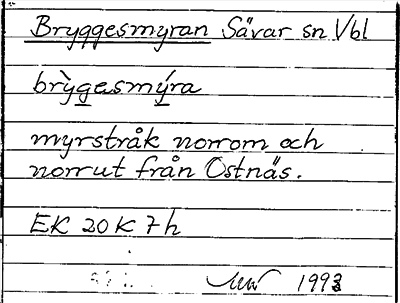 Bryggesmyran Sävar sn Vbl
brỳgesmýra
myrstråk norrom och
norrut från Ostnäs.
EK 20 K 7 h
1993